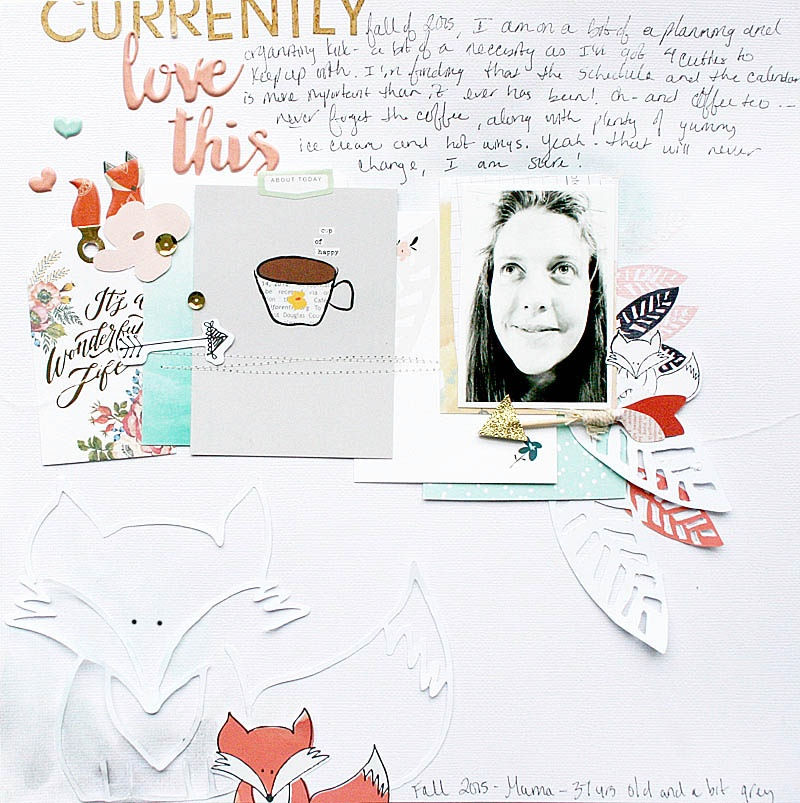 CURRENTLY
love
this
fall of 2015, I am on a bit of a planning and
organizing kick - a bit of a necessity as I'm got 4 cuties to
keep up with. I'm finding that the schedule and the calendar
is more important than it ever has been! Oh - and coffee too --
never forget the coffee, along with plenty of yummy
ice cream and hot wings. Yeah - that will never
change, I am sure!
ABOUT TODAY
cup
of
happy
14, 201
be via
on the Café
To
st Douglas Cou
It's a
Wonderful
Life
Fall 2015 - Mama - 37 yrs old and a bit grey